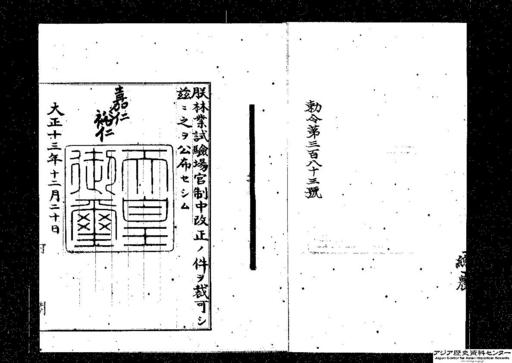 勅令第三百八十三號
朕林業試驗場官制中改正ノ件ヲ裁可シ
茲ニ之ヲ公布セシム
嘉仁
裕仁
天皇
御璽
大正十三年十二月二十日
アジア歴史資料センター
Japan Center for Asian Historical Records